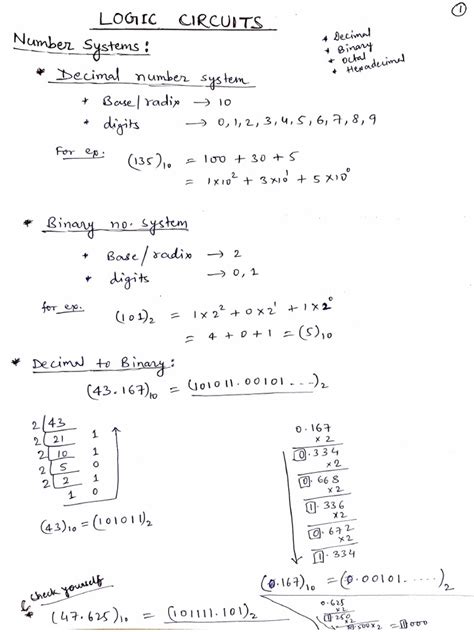 ①
LOGIC CIRCUITS
Number Systems:
* Decimal
* Binary
* Octal
* Hexadecimal
* Decimal number system
* Base/radix → 10
* digits → 0, 1, 2, 3, 4, 5, 6, 7, 8, 9
For ex: (135)₁₀ = 100 + 30 + 5
= 1×10² + 3×10¹ + 5×10⁰
* Binary no. system
* Base/radix → 2
* digits → 0, 1
for ex. (101)₂ = 1×2² + 0×2¹ + 1×2⁰
= 4 + 0 + 1 = (5)₁₀
* Decimal to Binary:
(43.167)₁₀ = (101011.00101...)₂
2 | 43
2 | 21 1
2 | 10 1
2 | 5 0
2 | 2 1
1 0
(43)₁₀ = (101011)₂
0.167
×2
0.334
×2
0.668
×2
1.336
×2
0.672
×2
1.334
(0.167)₁₀ = (0.00101.....)₂
Check yourself
* (47.625)₁₀ = (101111.101)₂
0.625
×2
1.25
0.500×2 = 1.000